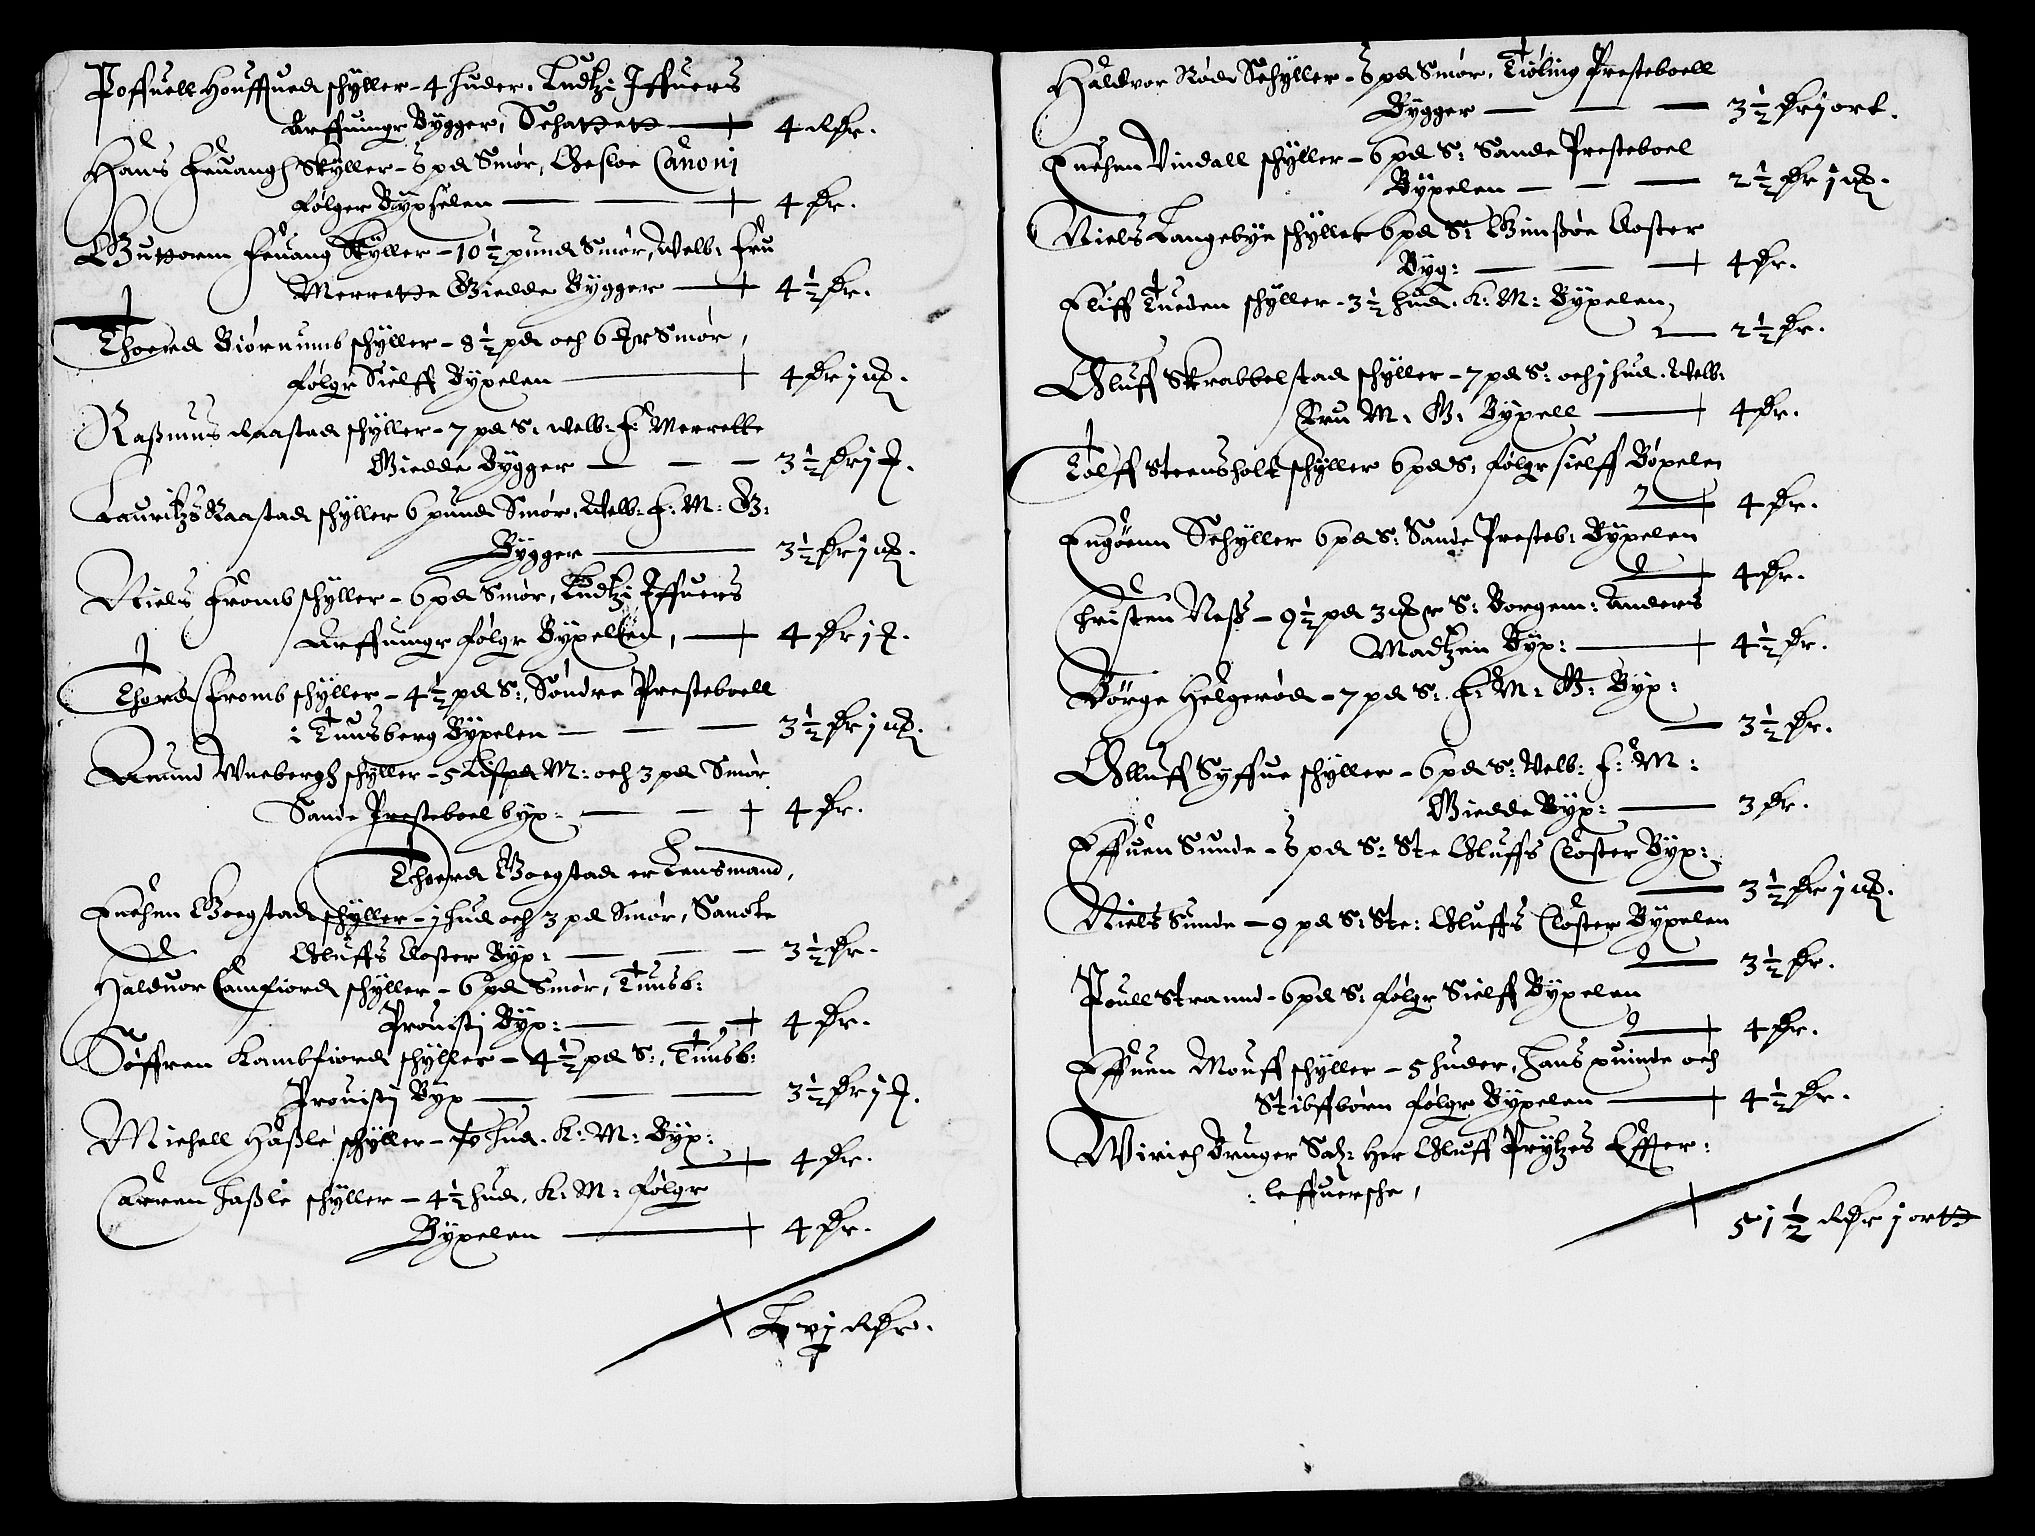 Poffuell Houffued schyller - 4 huder. Ludtzi Iffuers
Arffuingr Bygger, Schattett — 4 Rdr.
Hans Feuangh Skyller - 5 pd Smør, Gesloe Canonj
følger Bÿxselen — 4 dr.
Guttorm Feuang Skyller - 10½ pund Smør, Welb: Fru
Merrette Giedde Bygger — 4½ dr.
Thoerd Biørnumb schyller - 8½ pd och 6 mr Smør,
følgr Sielff Byxelen — 4 dr j
Rasmus Raastad schyller - 7 pd S: welb: f: Merrette
Giedde Bygger — 3½ dr j
Lauritzs Raastad schyller 6 pund Smør, Welb: f: M: G:
Bygger — 3½ dr j
Niels Fromb schyller - 6 pd Smør, Ludtzi Iffuers
Arffuingr følgr Byxelen, — 4 dr j
Thord Fromb schyller - 4½ pd S:, Søndre Presteboell
i Tunsberg Byxelen — 3½ dr j
Amund Wnebergh schyller - 5 Lispd M: och 3 pd Smør
Sande Presteboel byx: — 4 dr.
Thoerd Goegstad er Lensmand,
Enchen Goegstad schyller - j hud och 3 pd Smør, Sancte
Oluffs Closter Byx: — 3½ dr.
Halduor Camfiord schyller - 6 pd Smør, Tunsb:
Prouistj Byx: — 4 dr.
Søffren Kambfiord schyller - 4½ pd S:, Tunsb:
Prouistj Byx — 3½ dr j
Michell Haßle schyller - hud. K: M: Byx:
4 dr.
Carren Haßle schyller - 4½ hud. K: M: følgr
Byxelen — 4 dr.
Rdr.
Haldvor Røde Schyller - 5 pd Smør, Tiøling Presteboell
Bygger — 3½ dr j ort.
Enchen Vindall schyller - 6 pd S: Sande Presteboel
Byxelen — 2½ dr j
Niels Langebye schyller 6 pd S: Gimsøe Closter
Byg: — 4 dr.
Eliff Tueden schyller - 3½ hud. K: M: Byxelen,
2½ dr.
Oluff Skrabbelstad schyller - 7 pd S: och j hud. Welb:
Fru M: G: Byxell — 4 dr.
Tolff Steensholt schyller 6 pd S: følgr sielff Bøxelen
4 dr.
Engøenn Schyller 6 pd S: Sande Presteb: Byxelen
4 dr.
Christen Neß - 9½ pd 3 mr S: Borgem: Anders
Madtzen Byx: — 4½ dr.
Børge Helgerød - 7 pd S: F: M: G: Byx:
3½ dr.
Olluff Syffue schyller - 6 pd S: Welb: f: M:
Giedde Byx: — 3 dr.
Effuen Sunde - 5 pd S: Ste Oluffs Closter Byx:
3½ dr j
Niels Sunde - 9 pd S: Ste: Oluffs Closter Byxelen
3½ dr.
Poull Strannd - 6 pd S: følgr Sielff Byxelen
4 dr.
Effuen Mouff schyller - 5 huder, Hans quinde och
Stibffbørn følgr Byxelen — 4½ dr.
Wirich Bruger Sal: Her Oluff Prytzes Effter:
: leffuersche,
51½ Rdr j ortt